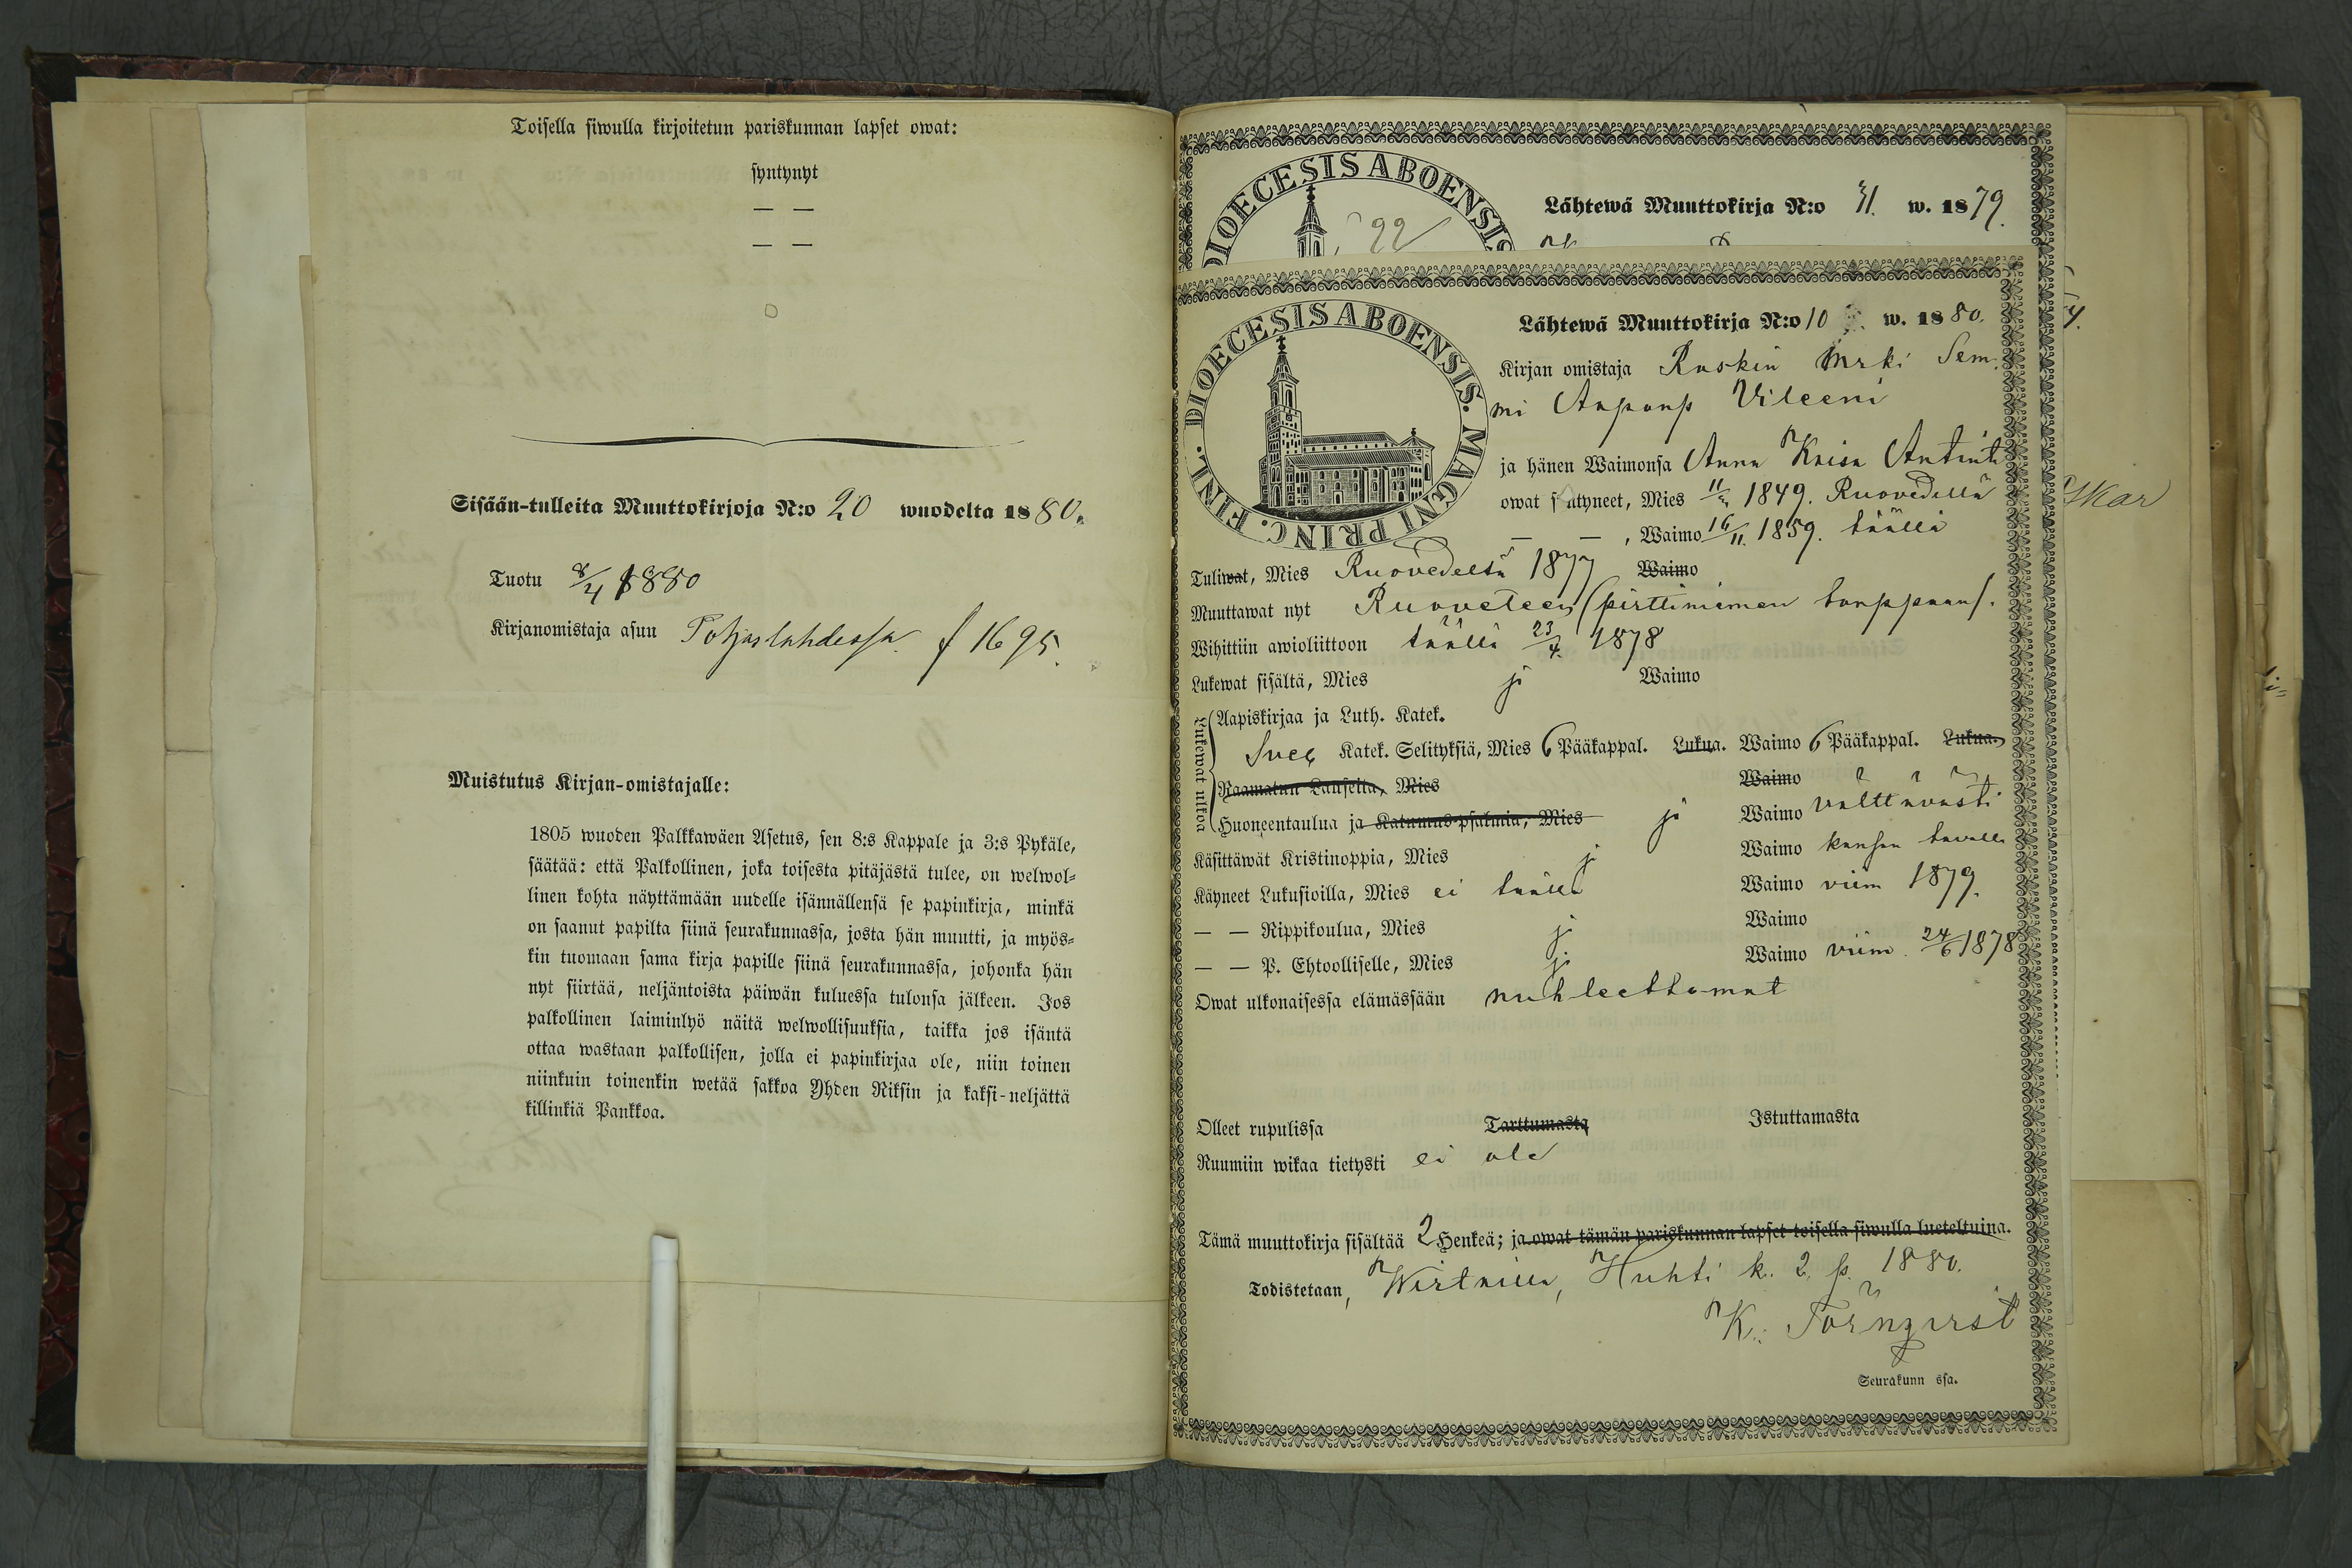 Toisella siwulla kirjoitetun pariskunnan lapset owat:
syntynyt
— —
— —
Sisään-tulleita Muuttokirjoja N:o 20 wuodelta 1880.
Tuotu 8/4 1880
Kirjanomistaja asuu Pohjaslahdessa f 1695.
Muistutus Kirjan-omistajalle:
1805 wuoden Palkkawäen Asetus, sen 8:s Kappale ja 3:s Pykäle,
säätää: että Palkollinen, joka toisesta pitäjästä tulee, on welwol-
linen kohta näyttämään uudelle isännällensä se papinkirja, minkä
on saanut papilta siinä seurakunnassa, josta hän muutti, ja myös-
kin tuomaan sama kirja papille siinä seurakunnassa, johonka hän
nyt siirtää, neljäntoista päiwän kuluessa tulonsa jälkeen. Jos
palkollinen laiminlyö näitä welwollisuuksia, taikka jos isäntä
ottaa wastaan palkollisen, jolla ei papinkirjaa ole, niin toinen
niinkuin toinenkin wetää sakkoa Yhden Riksin ja kaksi-neljättä
killinkiä Pankkoa.
DIOECESIS ABOENSIS
22
Lähtewä Muuttokirja N:o w. 1879.
DIOECESIS ABOENSIS. MAGNI PRINC. FINL.
Lähtewä Muuttokirja N:o 10 w. 1880.
Kirjan omistaja Ruskin
Vileeni
ja hänen Waimonsa Anna Kaisa Antint
owat syntyneet, Mies 1849. Ruovedellä
— — , Waimo 16/11. 1859. täällä
Tuliwat, Mies Ruovedeltä 1877 Waimo
Muuttawat nyt Ruoveteen (pirttiniemen torppaan).
Wihittiin awioliittoon täällä 23/4. 1878
Lukewat sisältä, Mies ja Waimo
Lukewat ulkoa
Aapiskirjaa ja Luth. Katek.
Sveb Katek. Selityksiä, Mies 6 Pääkappal. Lukua. Waimo 6 Pääkappal. Lukua.
Raamatun Lauseita, Mies Waimo
Huoneentaulua ja Katumus-psalmia, Mies ja Waimo välttävästi
Käsittäwät Kristinoppia, Mies ja Waimo kansan tavalla
Käyneet Lukusioilla, Mies ei täällä Waimo viim 1879.
— — Rippikoulua, Mies ja Waimo
— — P. Ehtoolliselle, Mies ja Waimo viim. 24/6 1878
Owat ulkonaisessa elämässään nuhteettomat
Olleet rupulissa Tarttumasta Istuttamasta
Ruumiin wikaa tietysti ei ole
Tämä muuttokirja sisältää 2 Henkeä; ja owat tämän pariskunnan lapset toisella siwulla lueteltuina.
Todistetaan, Wirtailla, Huhti k. 2. p. 1880.
K. Törnqvist
Seurakunn ssa.